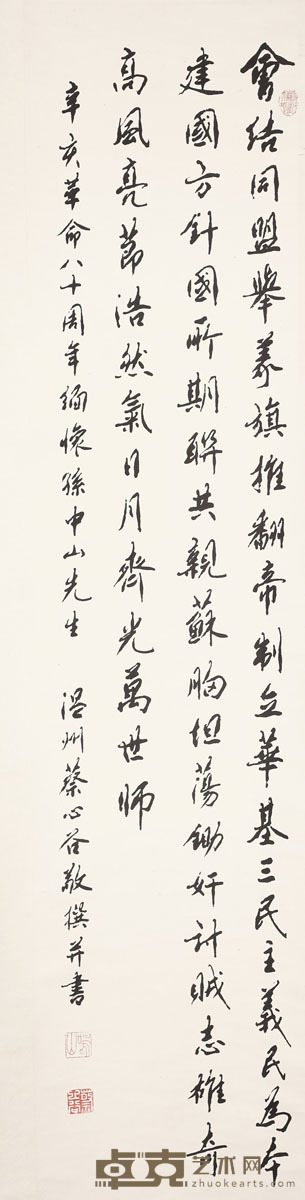 會結同盟舉義旗推翻帝制立華基三民主義民為本
建國方針國所期聯共親蘇胸坦蕩鋤奸討賊志雄奇
高風亮節浩然氣日月齊光萬世師
辛亥革命八十周年緬懷孫中山先生 温州蔡心谷敬撰并書
卓克艺术网
www.zhuokearts.com